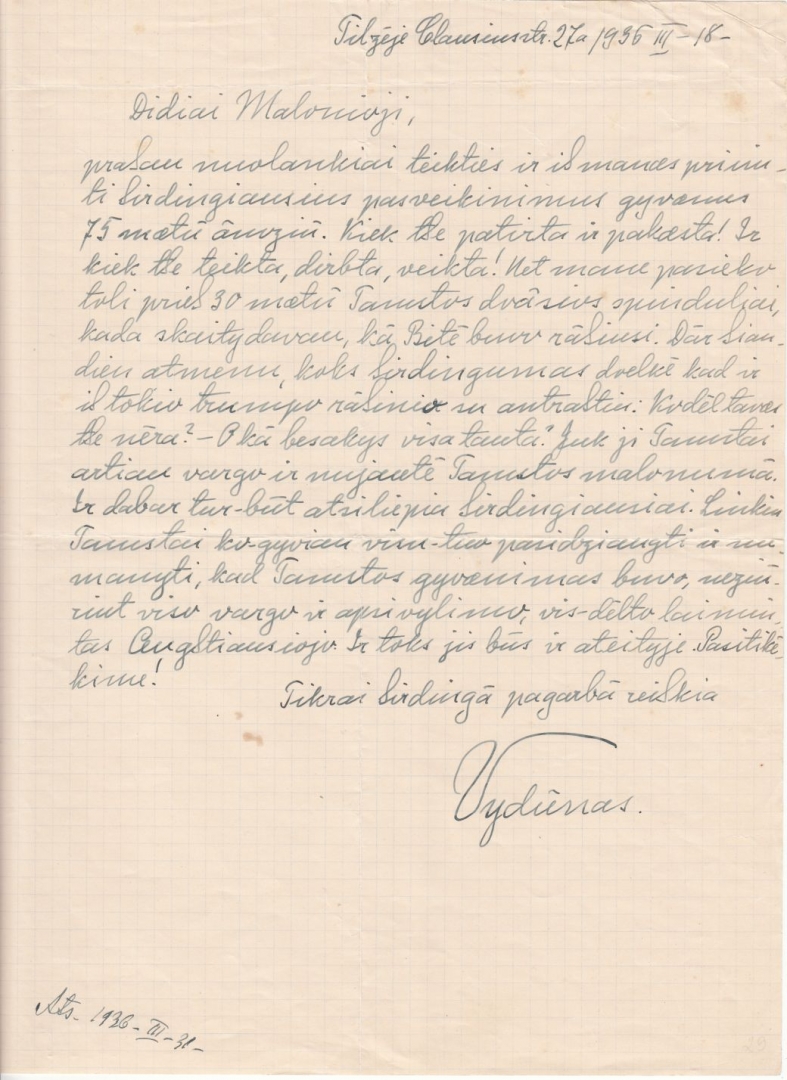 Tilžėje Clausiusstr. 27a 1936 III – 18 –
Didiai Malonioji,
prašau nuolankiai teikties ir iš manęs priim-
ti širdingiausius pasveikinimus gyvenus
75 mætū ámžiū. Kiek tše patirta ir pakæsta! Ir
kiek tše teikta, dirbta, veikta! Net mane pasieko
toli prieš 30 mætū Tamstos dvásios spinduliai,
kada skaitydavau, ką Bitė buvo rášiusi. Dár šian-
dien atmenu, koks širdingumas dvelkė kad ir
iš tokio trumpo rášinio su antraštiu: Kodėl tavæs
tše nėra? – O ką besakys visa tauta? Juk ji Tamstai
artiau vargo ir nujautė Tamstos malonumą.
Ir dabar tur-būt atsiliepia širdingiausiai. Linkiu
Tamstai ko-gyviau visu-tuo pasidžiaugti ir nu-
manyti, kad Tamstos gyvænimas buvo, nežiū-
rint viso vargo ir apsivylimo, vis-dėlto laimin-
tas Augštiausiojo. Ir toks jis bus ir ateityje. Pasitikė-
kime!
Tikrai širdingą pagarbą reiškia
Vydūnas.
Ats. 1936 – III – 31 –